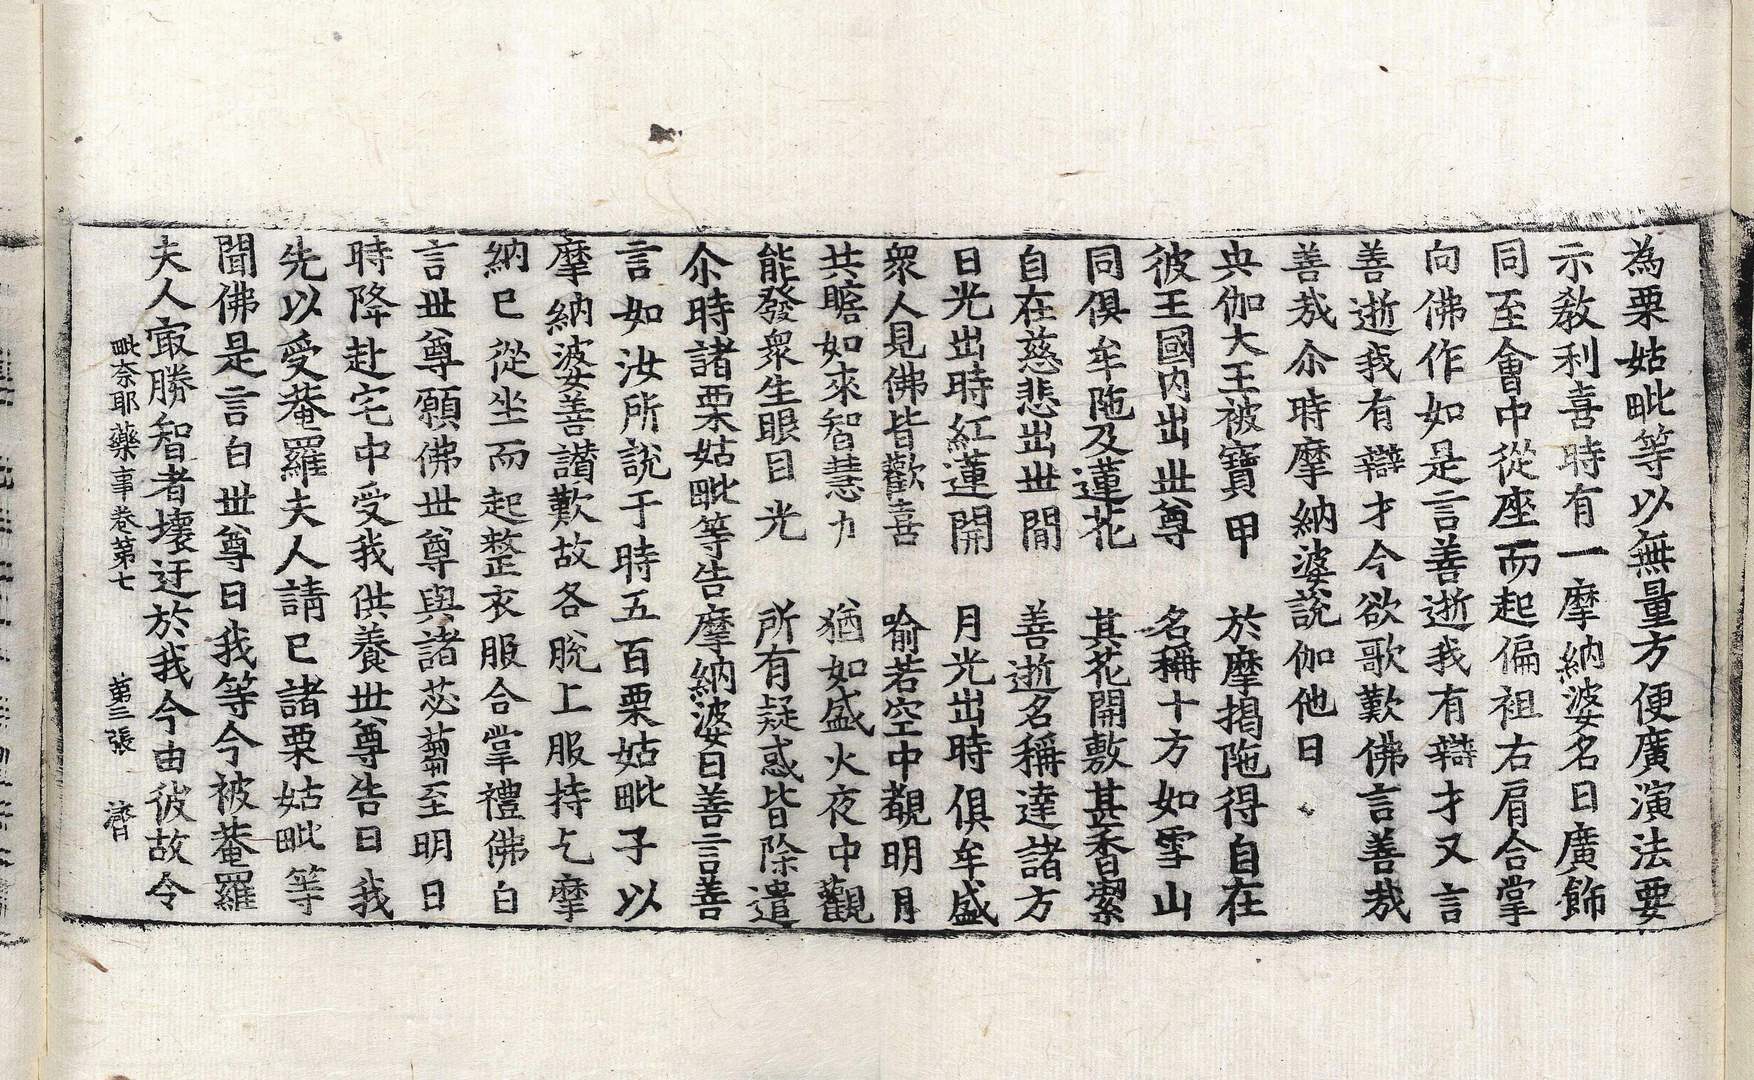 為栗姑毗等以無量方便廣演法要
示教利喜時有一摩納婆名曰廣飾
同至會中從座而起偏袒右肩合掌
向佛作如是言善逝我有辯才又言
善逝我有辯才今欲歌歎佛言善哉
善哉尒時摩納婆說伽他曰
央伽大王被寶甲 於摩揭陁得自在
彼王國内出丗尊 名稱十方如雪山
同俱牟陁及蓮花 其花開敷甚香潔
自在慈悲出丗間 善逝名稱達諸方
日光出時紅蓮開 月光出時俱牟盛
衆人見佛皆歡喜 喻若空中覩明月
共瞻如來智慧力 猶如盛火夜中觀
能發衆生眼目光 所有疑惑皆除遣
尒時諸栗姑毗等告摩納婆曰善言善
言如汝所說于時五百栗姑毗子以
摩納婆善讃歎故各脫上服持与摩
納已從坐而起整衣服合掌禮佛白
言丗尊願佛丗尊與諸苾蒭至明日
時降赴宅中受我供養丗尊告曰我
先以受菴羅夫人請已諸栗姑毗等
聞佛是言白丗尊曰我等今被菴羅
夫人㝡勝智者壞迂於我今由彼故令
毗奈耶藥事卷第七 第三張 濟